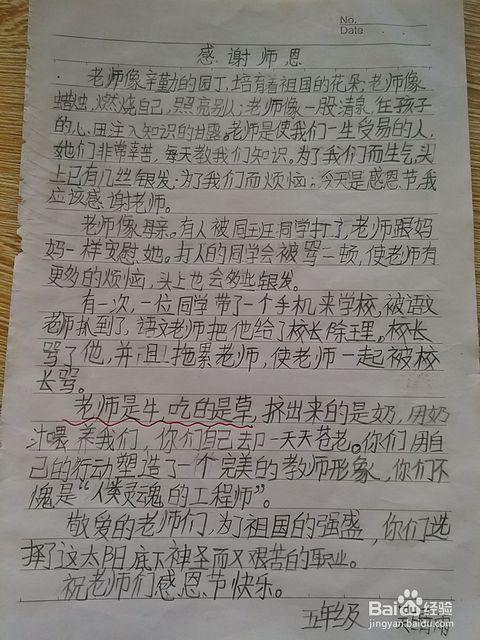 No.
Date
感谢师恩
老师像辛勤的园丁,培育着祖国的花朵;老师像
蜡烛,燃烧自己,照亮别人;老师像一股清泉,在孩子
的心田注入知识的甘露。老师是使我们一生受易的人,
她们非常辛苦,每天教我们知识。为了我们而生气,头
上已有几丝银发;为了我们而烦恼。今天是感恩节,我
应该感谢老师。
老师像母亲。有人被同班同学打了,老师跟妈
妈一样安慰她。打人的同学会被骂一顿,使老师有
更多的烦恼,头上也会多些银发。
有一次,一位同学带了一个手机来学校,被语文
老师抓到了,语文老师把他给了校长除理。校长
骂了他,并且拖累老师,使老师一起被校
长骂。
老师是牛,吃的是草,挤出来的是奶,用奶
汁喂养我们,你们自己却一天天苍老。你们用自
己的行动塑造了一个完美的教师形象,你们不
愧是“人类灵魂的工程师”。
敬爱的老师们,为了祖国的强盛,你们选
择了这太阳底下神圣而又艰苦的职业。
祝老师们感恩节快乐。
五年级
Baidu经验
jingyan.baidu.com